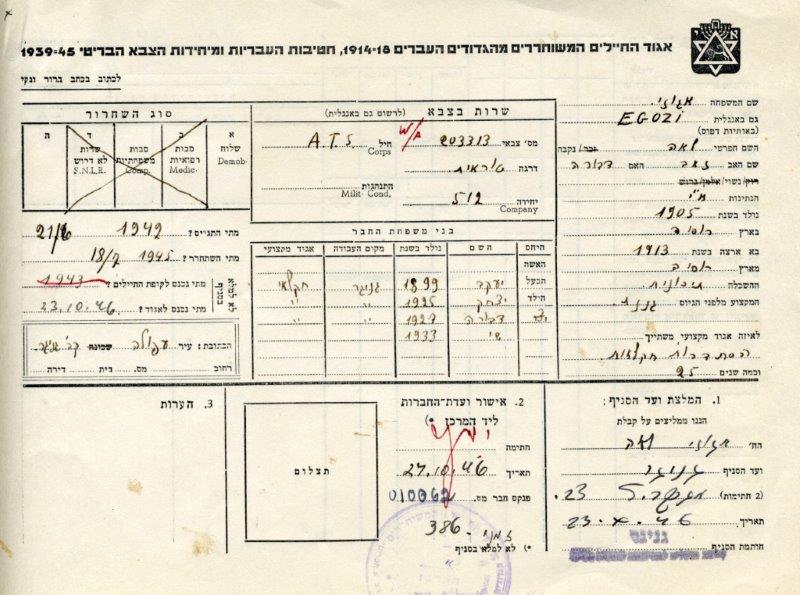 אגוד החיילים המשוחררים מהגדודים העברים 1914-18, חטיבות העבריות ומיחידות הצבא הבריטי 1939-45
לכתוב בכתב ברור ונקי
שם המשפחה אגוזי
גם באנגלית EGOZI
(באותיות דפוס)
השם הפרטי לאה זכר/נקבה
שם האב זאב האם דבורה
רוק/נשוי/אלמן/גרוש
הנתינות א"י
נולד בשנת 1905
בארץ רוסיה
בא ארצה בשנת 1913
מארץ רוסיה
ההשכלה תיכונית
המקצוע מלפני הגיוס גננת
לאיזה אגוד מקצועי משתייך
הסתדרות חקלאית
וכמה שנים 25
שרות בצבא (לרשום גם באנגלית)
מס' צבאי W/A 203313 חיל A.T.S.
Corps
דרגה טוראית
התנהגות
Milit Cond.
יחידה 512
Company
סוג השחרור
א ב ג ד ה
שלוח Demob.
סבות רפואיות Medic.
סבות משפחתיות Comp.
שרות לא דרוש S.N.L.R.
מתי התגייס? 1942 21/6
מתי השתחרר? 1945 18/7
מתי נכנס לקופת החיילים? 1943
מתי נכנס לאגוד? 23.10.46
לא למלא בסניף
הכתובת: עיר עפולה שכונה קב' גניגר
רחוב מס. בית דירה
בני משפחת החבר
היחס השם נולד בשנת מקום העבודה אגוד מקצועי
האשה
הבעל יעקב 1899 גניגר חקלאי
הילד יצחק 1925 " "
דבורה 1927 "
שי 1933
1. המלצת ועד הסניף:
הננו ממליצים על קבלת
הח' אגוזי לאה
ועד הסניף גניגר
(2 חתימות) 23.
תאריך, 23.X.46
חותמת הסניף גניגר
2. אישור ועדת-החברות
ליד המרכז *)
חתימה
תאריך 27.10.46
פנקס חבר מס. 010062
זמני - 386
*) לא למלא בסניף
תצלום
3. הערות